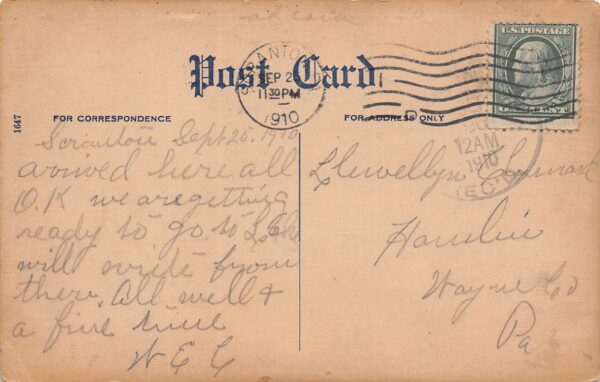 ad card
Post Card
SCRANTON, PA.
SEP 2
11 30 PM
1910
U.S. POSTAGE
FOR CORRESPONDENCE
FOR ADDRESS ONLY
1647
12 AM
1910
REC'D
Scranton Sept 25, 1910
arrived here all
O.K we are getting
ready to go to
will write from
there. All well &
a fine time
W E C
Llewellyn
Hamlin
Wayne Co
Pa